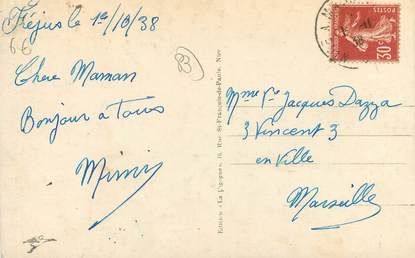 Fréjus le 1er/10/38
66
83
Chere Maman
Bonjour a tous
Mimi
Edition "La Pygogne", 16, Rue St-François-de-Paule, Nice
POSTES
30c
Mme Ve Jacques Dazza
3 Vincent 3
en Ville
Marseille